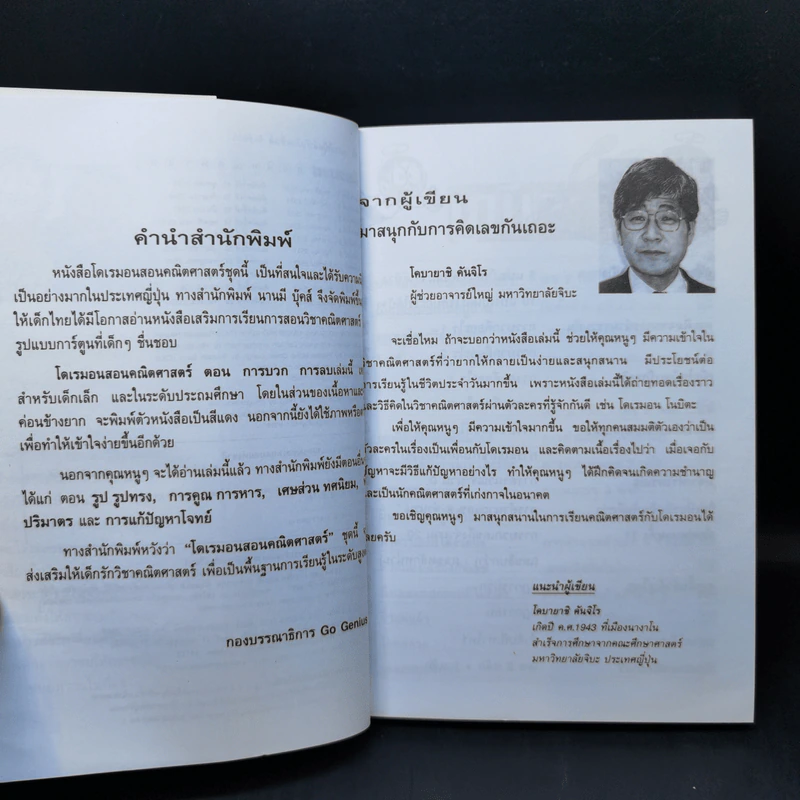 คำนำสำนักพิมพ์
หนังสือโดเรมอนสอนคณิตศาสตร์ชุดนี้ เป็นที่สนใจและได้รับความ
เป็นอย่างมากในประเทศญี่ปุ่น ทางสำนักพิมพ์ นานมี บุ๊คส์ จึงจัดพิมพ์ขึ้น
ให้เด็กไทยได้มีโอกาสอ่านหนังสือเสริมการเรียนการสอนวิชาคณิตศาสตร์
รูปแบบการ์ตูนที่เด็กๆ ชื่นชอบ
โดเรมอนสอนคณิตศาสตร์ ตอน การบวก การลบเล่มนี้
สำหรับเด็กเล็ก และในระดับประถมศึกษา โดยในส่วนของเนื้อหา
ค่อนข้างยาก จะพิมพ์ตัวหนังสือเป็นสีแดง นอกจากนี้ยังได้ใช้ภาพ
เพื่อทำให้เข้าใจง่ายขึ้นอีกด้วย
นอกจากคุณหนูๆ จะได้อ่านเล่มนี้แล้ว ทางสำนักพิมพ์ยังมีตอน
ได้แก่ ตอน รูป รูปทรง, การคูณ การหาร, เศษส่วน ทศนิยม,
ปริมาตร และ การแก้ปัญหาโจทย์
ทางสำนักพิมพ์หวังว่า "โดเรมอนสอนคณิตศาสตร์" ชุดนี้
ส่งเสริมให้เด็กรักวิชาคณิตศาสตร์ เพื่อเป็นพื้นฐานการเรียนรู้ในระดับ
กองบรรณาธิการ Go Genius
จากผู้เขียน
มาสนุกกับการคิดเลขกันเถอะ
โคบายาชิ คันจิโร
ผู้ช่วยอาจารย์ใหญ่ มหาวิทยาลัยจิบะ
จะเชื่อไหม ถ้าจะบอกว่าหนังสือเล่มนี้ ช่วยให้คุณหนูๆ มีความเข้าใจใน
วิชาคณิตศาสตร์ที่ว่ายากให้กลายเป็นง่ายและสนุกสนาน มีประโยชน์ต่อ
การเรียนรู้ในชีวิตประจำวันมากขึ้น เพราะหนังสือเล่มนี้ได้ถ่ายทอดเรื่องราว
และวิธีคิดในวิชาคณิตศาสตร์ผ่านตัวละครที่รู้จักกันดี เช่น โดเรมอน โนบิตะ
เพื่อให้คุณหนูๆ มีความเข้าใจมากขึ้น ขอให้ทุกคนสมมติตัวเองว่าเป็น
ตัวละครในเรื่องเป็นเพื่อนกับโดเรมอน และคิดตามเนื้อเรื่องไปว่า เมื่อเจอกับ
ปัญหาจะมีวิธีแก้ปัญหาอย่างไร ทำให้คุณหนูๆ ได้ฝึกคิดจนเกิดความชำนาญ
และเป็นนักคณิตศาสตร์ที่เก่งกาจในอนาคต
ขอเชิญคุณหนูๆ มาสนุกสนานในการเรียนคณิตศาสตร์กับโดเรมอนได้
เลยครับ
แนะนำผู้เขียน
โคบายาชิ คันจิโร
เกิดปี ค.ศ.1943 ที่เมืองนางาโน
สำเร็จการศึกษาจากคณะศึกษาศาสตร์
มหาวิทยาลัยจิบะ ประเทศญี่ปุ่น